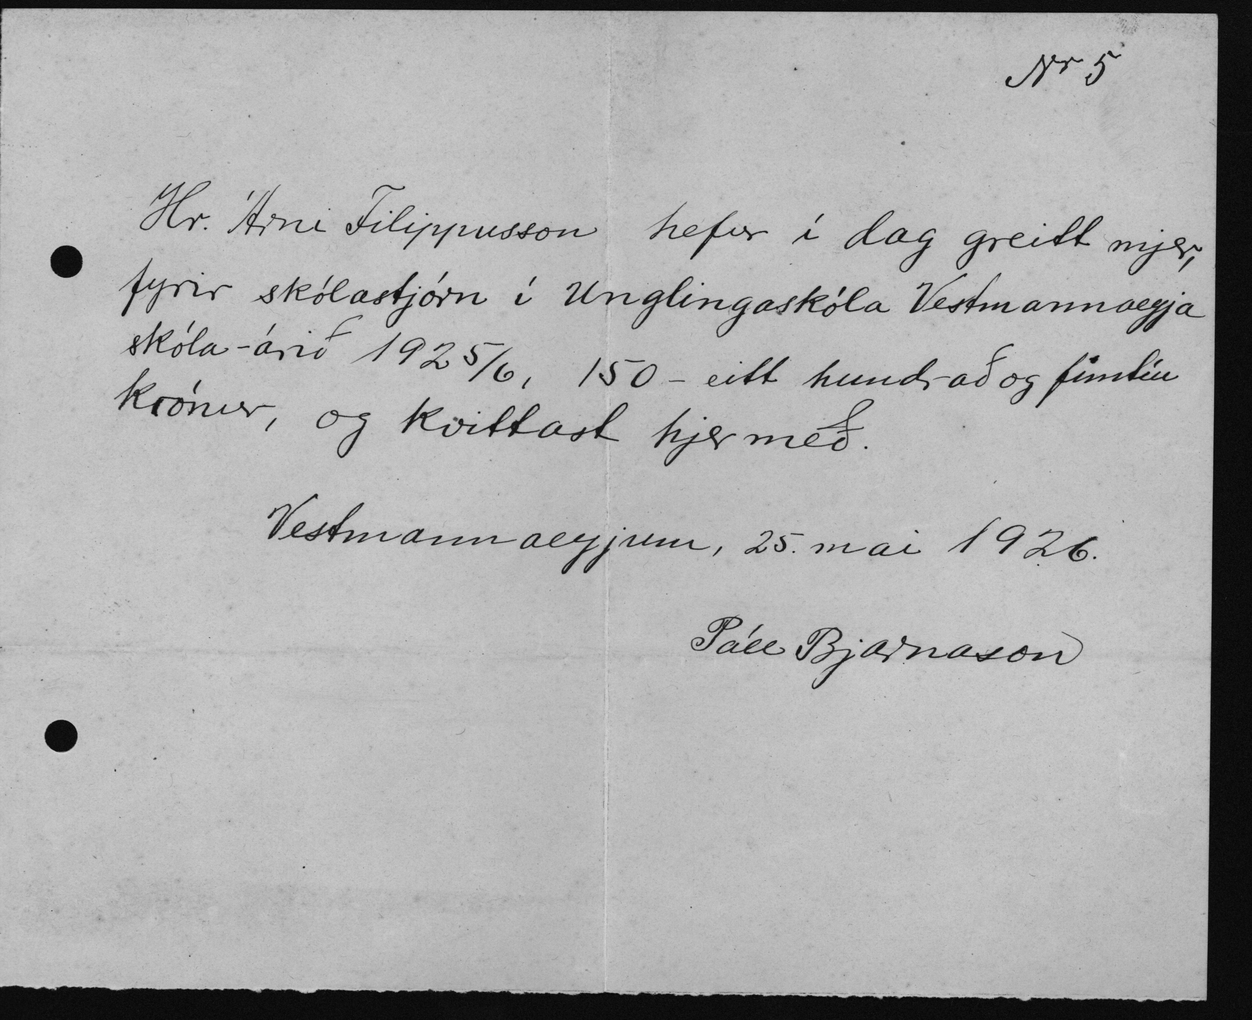 Nr 5
Hr. Árni Filippusson hefur í dag greitt mjer,
fyrir skólastjórn í Unglingaskóla Vestmannaeyja
skóla-árið 1925/6, 150 - eitt hundrað og fimtíu
krónur, og kvittast hjer með.
Vestmannaeyjum, 25. mai 1926.
Páll Bjarnason